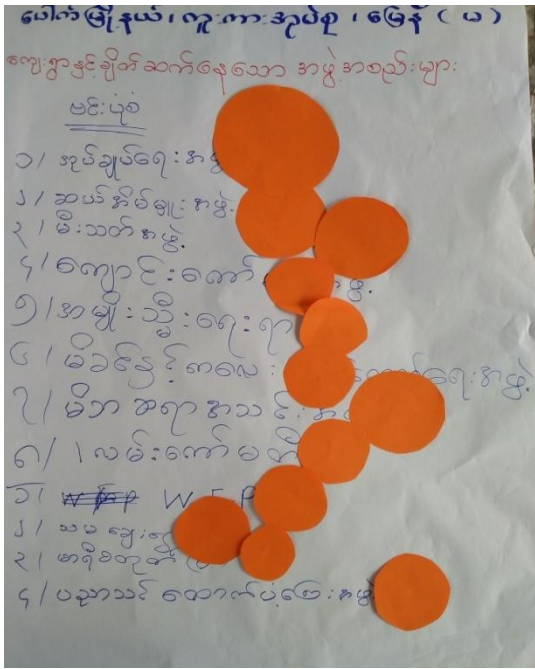 ပေါက်မြို့နယ်၊ ကူးကားအုပ်စု၊ မြေနီ (မ)
ကျေးရွာနှင့်ချိတ်ဆက်နေသော အဖွဲ့အစည်းများ
ဗင်းပုံစံ
၁/ အုပ်ချုပ်ရေးအဖွဲ့
၂/ ဆယ်အိမ်မှူးအဖွဲ့
၃/ မီးသတ်အဖွဲ့
၄/ ကျောင်းကော် ဖွဲ့
၅/ အမျိုးသ္မီးရေးရာ
၆/ မိခင်နှင့်ကလေး ရေးအဖွဲ့
၇/ မိဘဆရာအသင်း
၈/ လမ်းကော်မတီ
၁/ W F P
၂/ သမ
၃/
၄/ ပညာသင် ထောက်ပံ့ကြေးအဖွဲ့